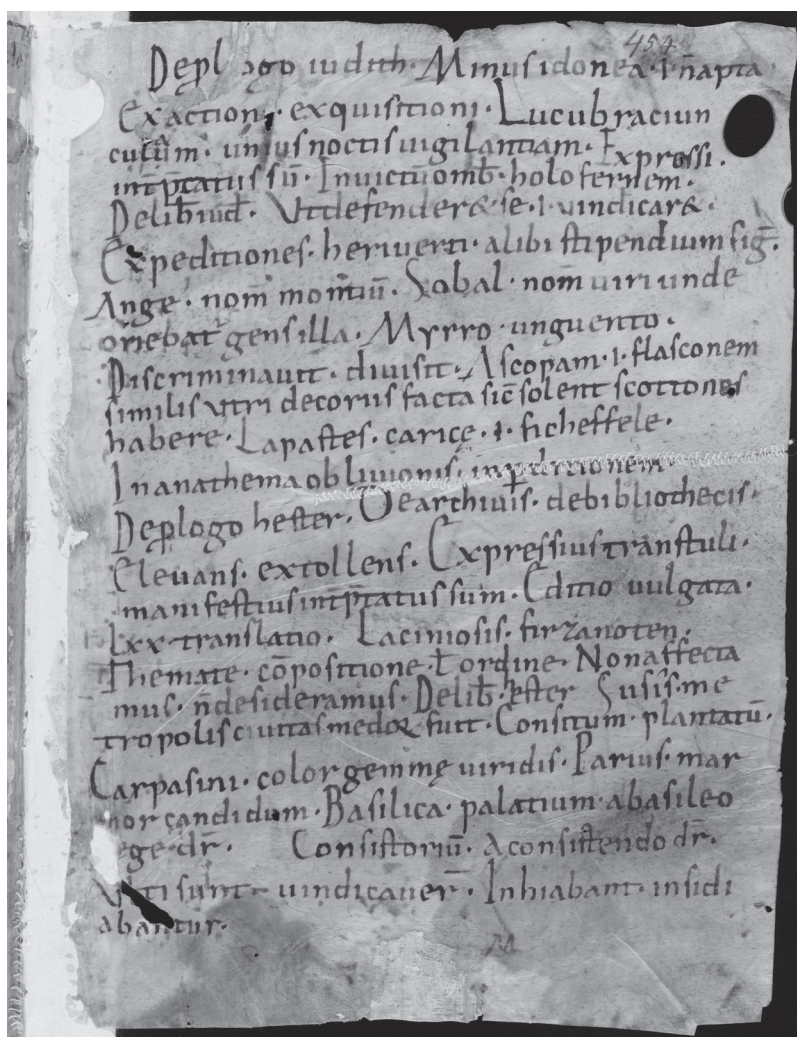 454
Dep̄l ogo iudith· Minus idonea·ł· n̄apta
Exactioni· exquisitioni· Lucubraciun
culam· unius noctis uigilantiam· Expressi·
int̄p̄tatus sū· Inuictū omīb· holofernem·
De lib̄ iud̄· Vt defender& se·ł· uindicar&·
Expeditiones· heriuerti· alibi stipendium siḡ·
Ange· nom̄ montiū· Sobal· nom̄ uiri unde
oriebat̄ gens illa· Myrro· unguento·
Discriminauit· diuisit· Ascopam·ł· flasconem
similis utri decorius facta sic̄ solent scottones
habere· Lapastes· caricę·ł· ficheffele·
In anathema obliuionis· in p̄ditionem·
Dep̄logo hester· De archiuis· de bibliothecis·
Eleuans· extollens· Expressius transtuli·
manifestius int̄p̄tatus sum· Editio uulgata·
Lxx translatio· Laciniosis· firzanoten·
Themate· cōpositione·ł ordine· Non affecta
mus· n̄ desideramus· De lib̄· ester Susis· me
tropolis ciuitas medoꝝ fuit· Consitum· plantatū·
Carpasini· color gemmę uiridis· Parius· mar
mor candidum· Basilica· palatium· a basileo
ege dr̄· Consistoriū· a consistendo dr̄·
sunt· uindicauer̄· Inhiabant· insidi
abantur·